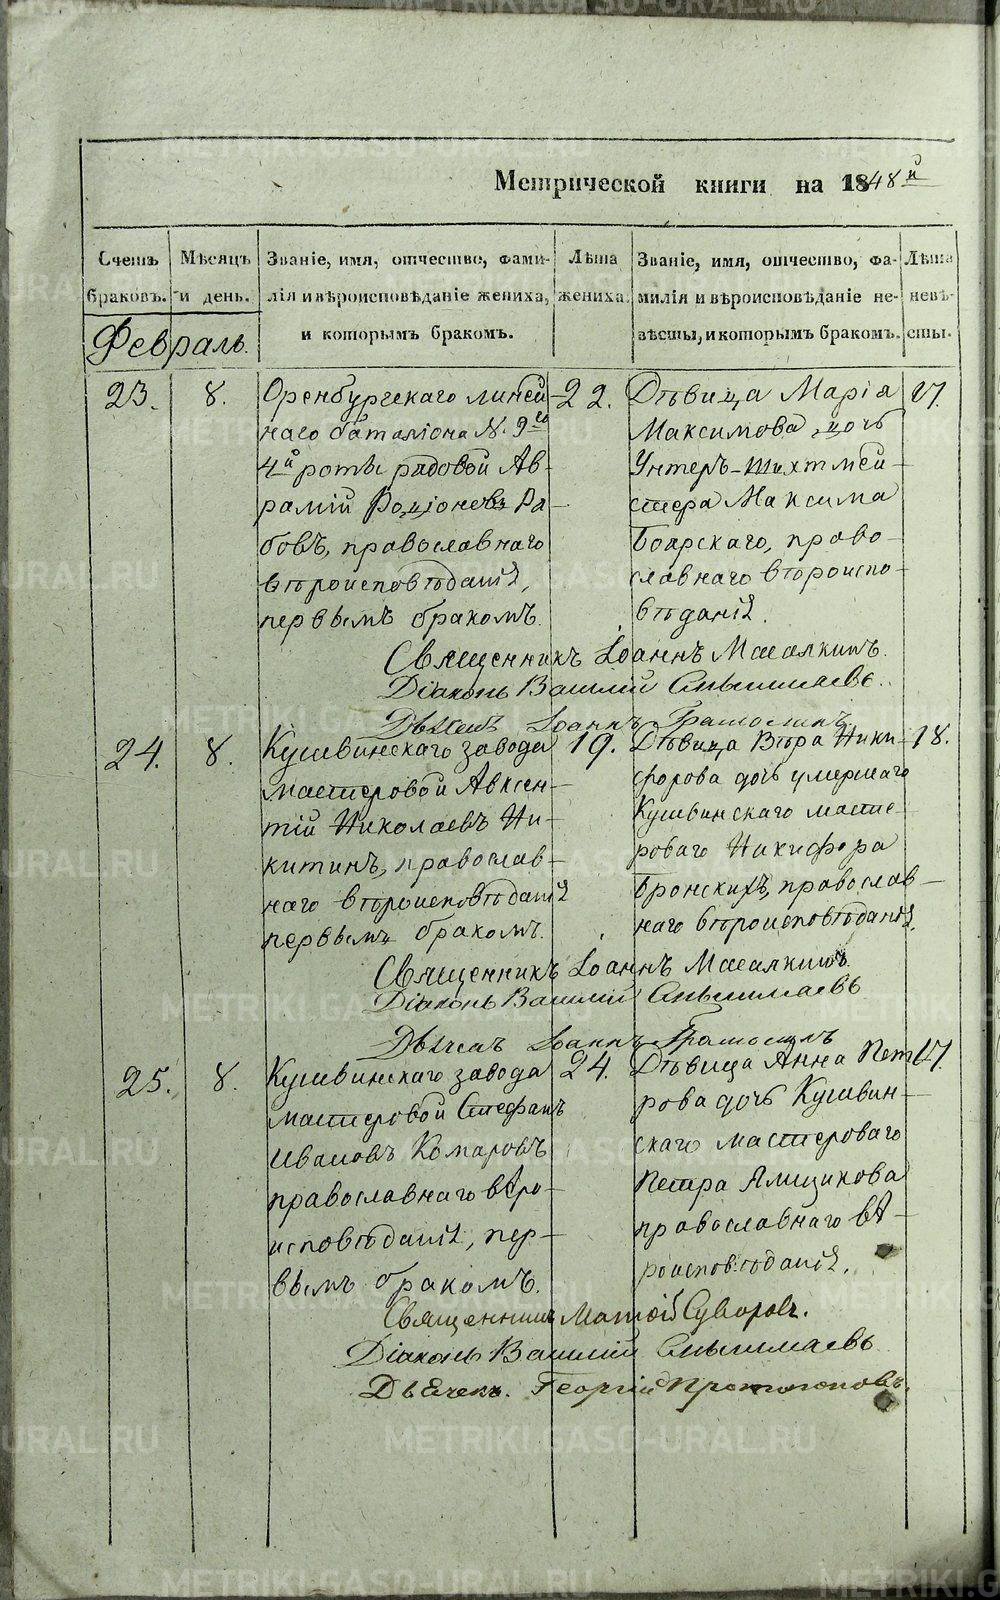 Метрической книги на 1848й
Счетъ браковъ.
Мѣсяцъ и день.
Званіе, имя, отчество, фами-
лія и вѣроисповѣданіе жениха,
и которымъ бракомъ.
Лѣта жениха.
Званіе, имя, отчество, фа-
милія и вѣроисповѣданіе не-
вѣсты, и которымъ бракомъ.
Лѣта невѣ-
сты.
Февраль.
23.
8.
Оренбургскаго линей-
наго баталіона N. 9го
4й роты рядовой Ав-
рамій Родіоновъ Ря-
бовъ, православнаго
вѣроисповѣданія,
первымъ бракомъ.
22.
Дѣвица Марія
Максимова, дочь
Унтеръ-шихтмей-
стера Максима
Боярскаго, право-
славнаго вѣроиспо-
вѣданія.
17.
Священникъ Іоаннъ Масалкинъ.
Діаконъ Василій
Дьячекъ Іоаннъ
24.
8.
Кушвинскаго завода
мастеровой Авксен-
тій Николаевъ Ни-
китинъ, православ-
наго вѣроисповѣданія
первымъ бракомъ.
19.
Дѣвица Вѣра Ники-
форова дочь умершаго
Кушвинскаго масте-
роваго Никифора
Бронскихъ, православ-
наго вѣроисповѣданія.
18.
Священникъ Іоаннъ Масалкинъ.
Діаконъ Василій
Дьячекъ Іоаннъ
25.
8.
Кушвинскаго завода
мастеровой Стефанъ
Ивановъ Комаровъ
православнаго вѣро-
исповѣданія, пер-
вымъ бракомъ.
24.
Дѣвица Анна Пет-
рова дочь Кушвин-
скаго мастероваго
Петра Ямщикова
православнаго вѣ-
роисповѣданія.
17.
Священникъ Матөій Суворовъ.
Діаконъ Василій
Дьячекъ. Георгій Протопоповъ.
METRIKI.GASO-URAL.RU